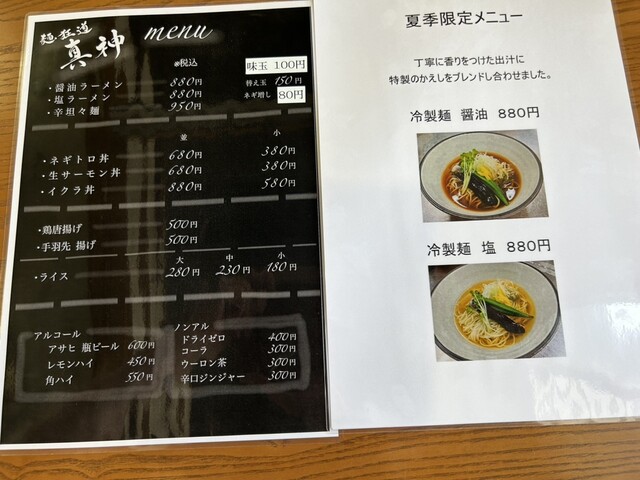 麺・狂道
真神 menu
※税込
味玉 100円
・醤油ラーメン 880円
替え玉 150円
・塩ラーメン 880円
ネギ増し 80円
・辛坦々麺 950円
並 小
・ネギトロ丼 680円 380円
・生サーモン丼 680円 380円
・イクラ丼 880円 580円
・鶏唐揚げ 500円
・手羽先 揚げ 500円
大 中 小
・ライス 280円 230円 180円
アルコール
アサヒ 瓶ビール 600円
レモンハイ 450円
角ハイ 550円
ノンアル
ドライゼロ 400円
コーラ 300円
ウーロン茶 300円
辛口ジンジャー 300円
夏季限定メニュー
丁寧に香りをつけた出汁に
特製のかえしをブレンドし合わせました。
冷製麺 醤油 880円
冷製麺 塩 880円